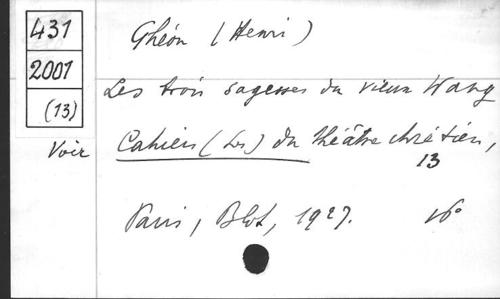 431
2001
(13)
Ghéon (Henri)
Les trois sagesses du vieux Wang
Voir Cahiers (Les) du théâtre chrétien,
13
Paris, Blot, 1927. 16°